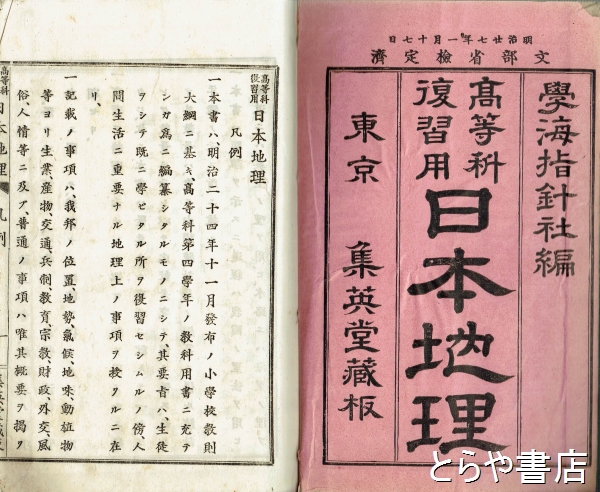 明治廿七年一月十七日
文部省檢定濟
學海指針社編
高等科
復習用
日本地理
東京
集英堂藏板
高等科
復習用
日本地理
凡例
一本書ハ、明治二十四年十一月發布ノ小學校教則
大綱ニ基キ、高等科第四學年ノ教科用書ニ充テ
ンガ爲ニ編纂シタルモノニシテ、其要旨ハ、生徒
ヲシテ既ニ學ビタル所ヲ復習セシムルノ傍、人
間生活ニ重要ナル地理上ノ事項ヲ授クルニ在
リ、
一記載ノ事項ハ、我邦ノ位置、地勢、氣候、地味、動植物
等ヨリ生業、産物、交通、兵制、教育、宗教、財政、外交、風
俗、人情等ニ及ブ、普通ノ事項ハ唯其概要ヲ揭ク
高等科
日本地理
凡例
一
とらや書店